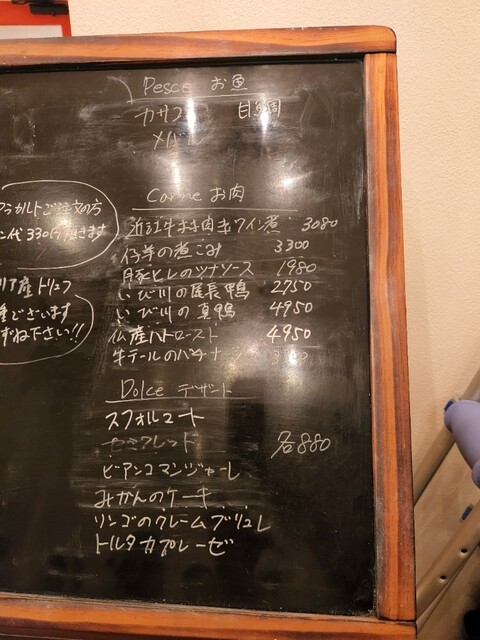 Pesce お魚
カサゴ 目鯛
メバル
アラカルトご注文の方
ン代330円頂きます
リア産トリュフ
ございます
ずね下さい!!
Carne お肉
近江牛ほほ肉赤ワイン煮 3080
仔羊の煮こみ 3300
豚ヒレのツナソース 1980
いび川の尾長鴨 2750
いび川の真鴨 4950
仏産ハトロースト 4950
牛テールのパチナ
Dolce デザート
スフォルマート
セミフレッド 各880
ビアンコマンジャーレ
みかんのケーキ
リンゴのクレームブリュレ
トルタカプレーゼ